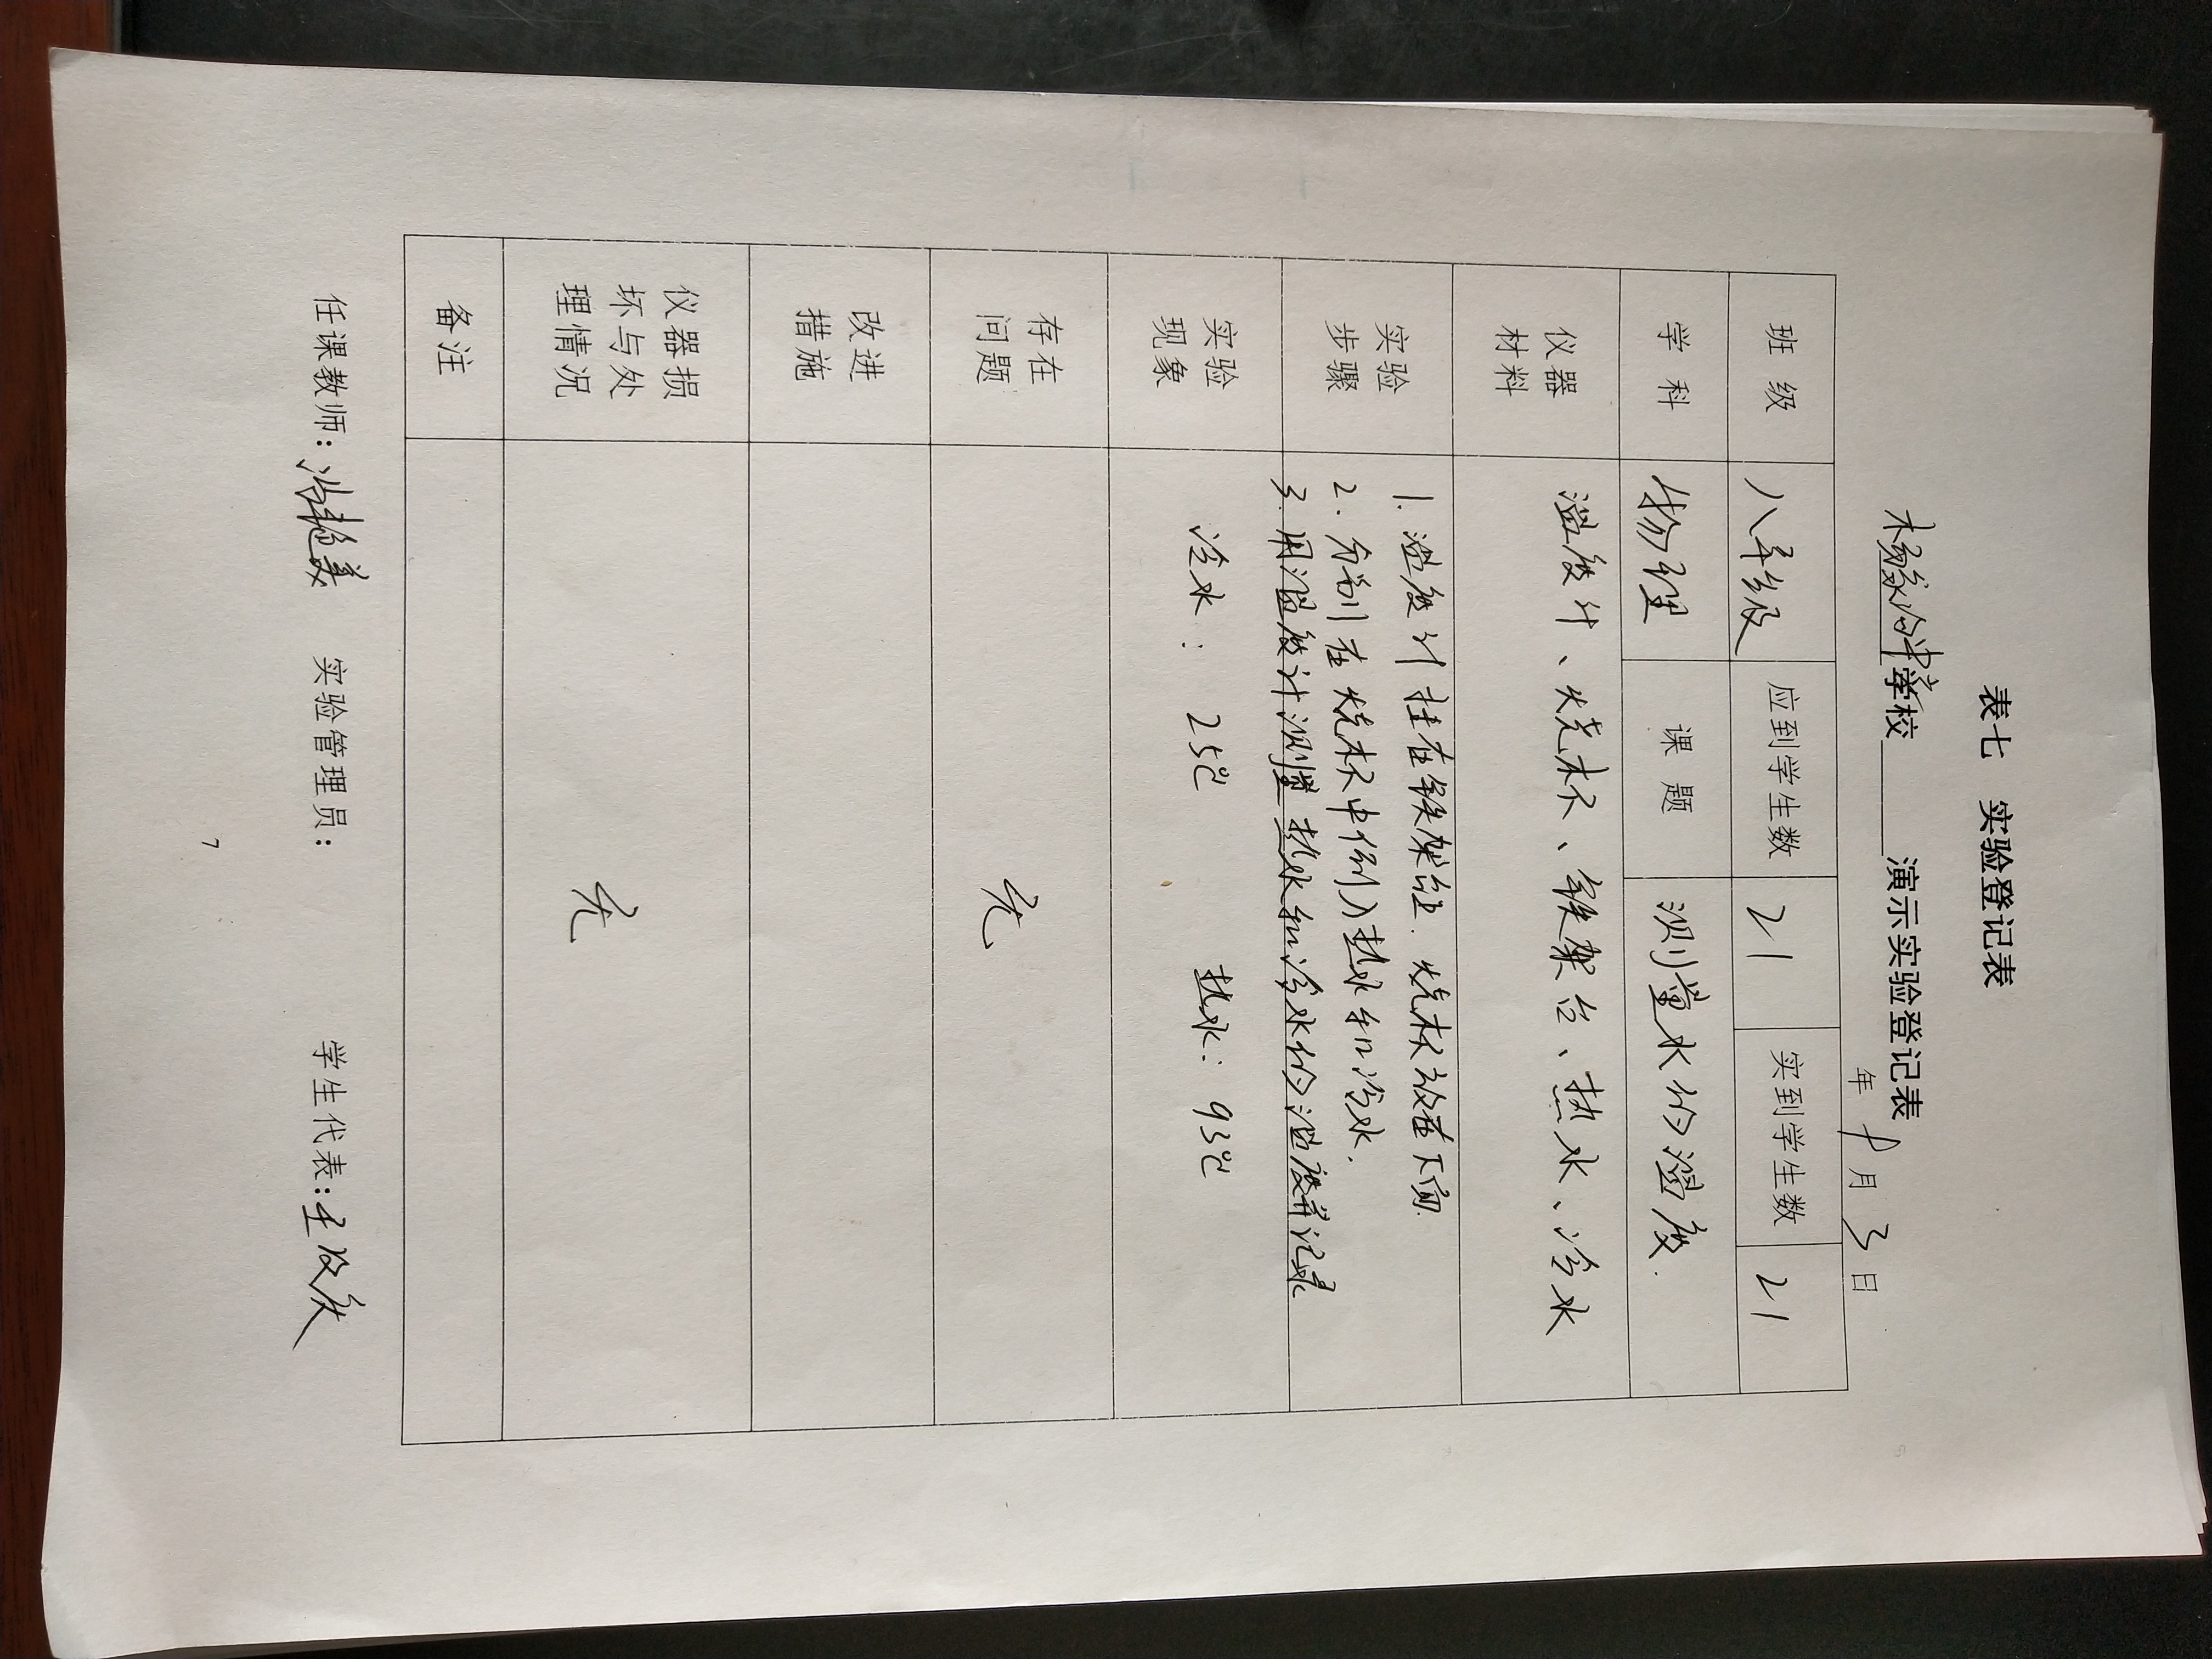 表七 实验登记表
学校 演示实验登记表
年 月 3 日
班 级 八年级 应到学生数 21 实到学生数 21
学 科 物理 课 题 测量水的温度.
仪器
材料
温度计、烧杯、铁架台、热水、冷水
实验
步骤
1. 温度计挂在铁架台上. 烧杯放在下面.
2. 分别在烧杯中倒入热水和冷水.
3. 用温度计测量热水和冷水的温度并记录
实验
现象
冷水: 25℃ 热水: 93℃
存在
问题
无
改进
措施
仪器损
坏与处
理情况
无
备注
任课教师: 实验管理员: 学生代表:
7